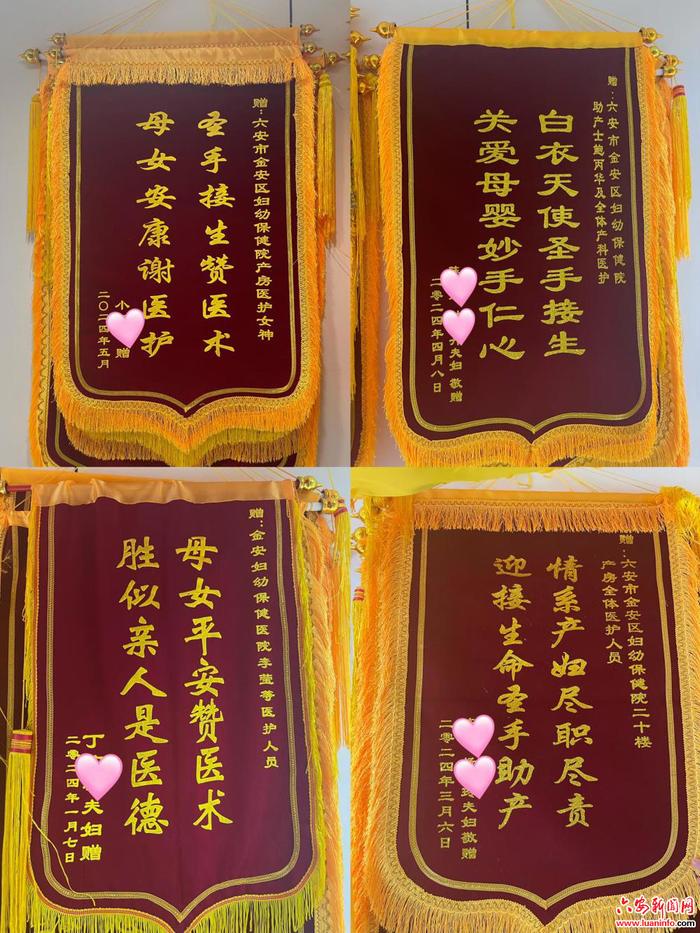 赠：六安市金安区妇幼保健院产房医护女神
圣手接生赞医术
母女安康谢医护
小 赠
二〇二四年五月
赠：六安市金安区妇幼保健院
助产士鲍丙华及全体产科医护
白衣天使圣手接生
关爱母婴妙手仁心
夫妇 敬赠
二零二四年四月八日
赠：金安妇幼保健医院李莹等医护人员
母女平安赞医术
胜似亲人是医德
丁 夫妇赠
二零二四年一月七日
赠：六安市金安区妇幼保健院二十楼
产房全体医护人员
情系产妇尽职尽责
迎接生命圣手助产
夫妇敬赠
二零二四年三月六日
六安新闻网
www.luaninfo.com